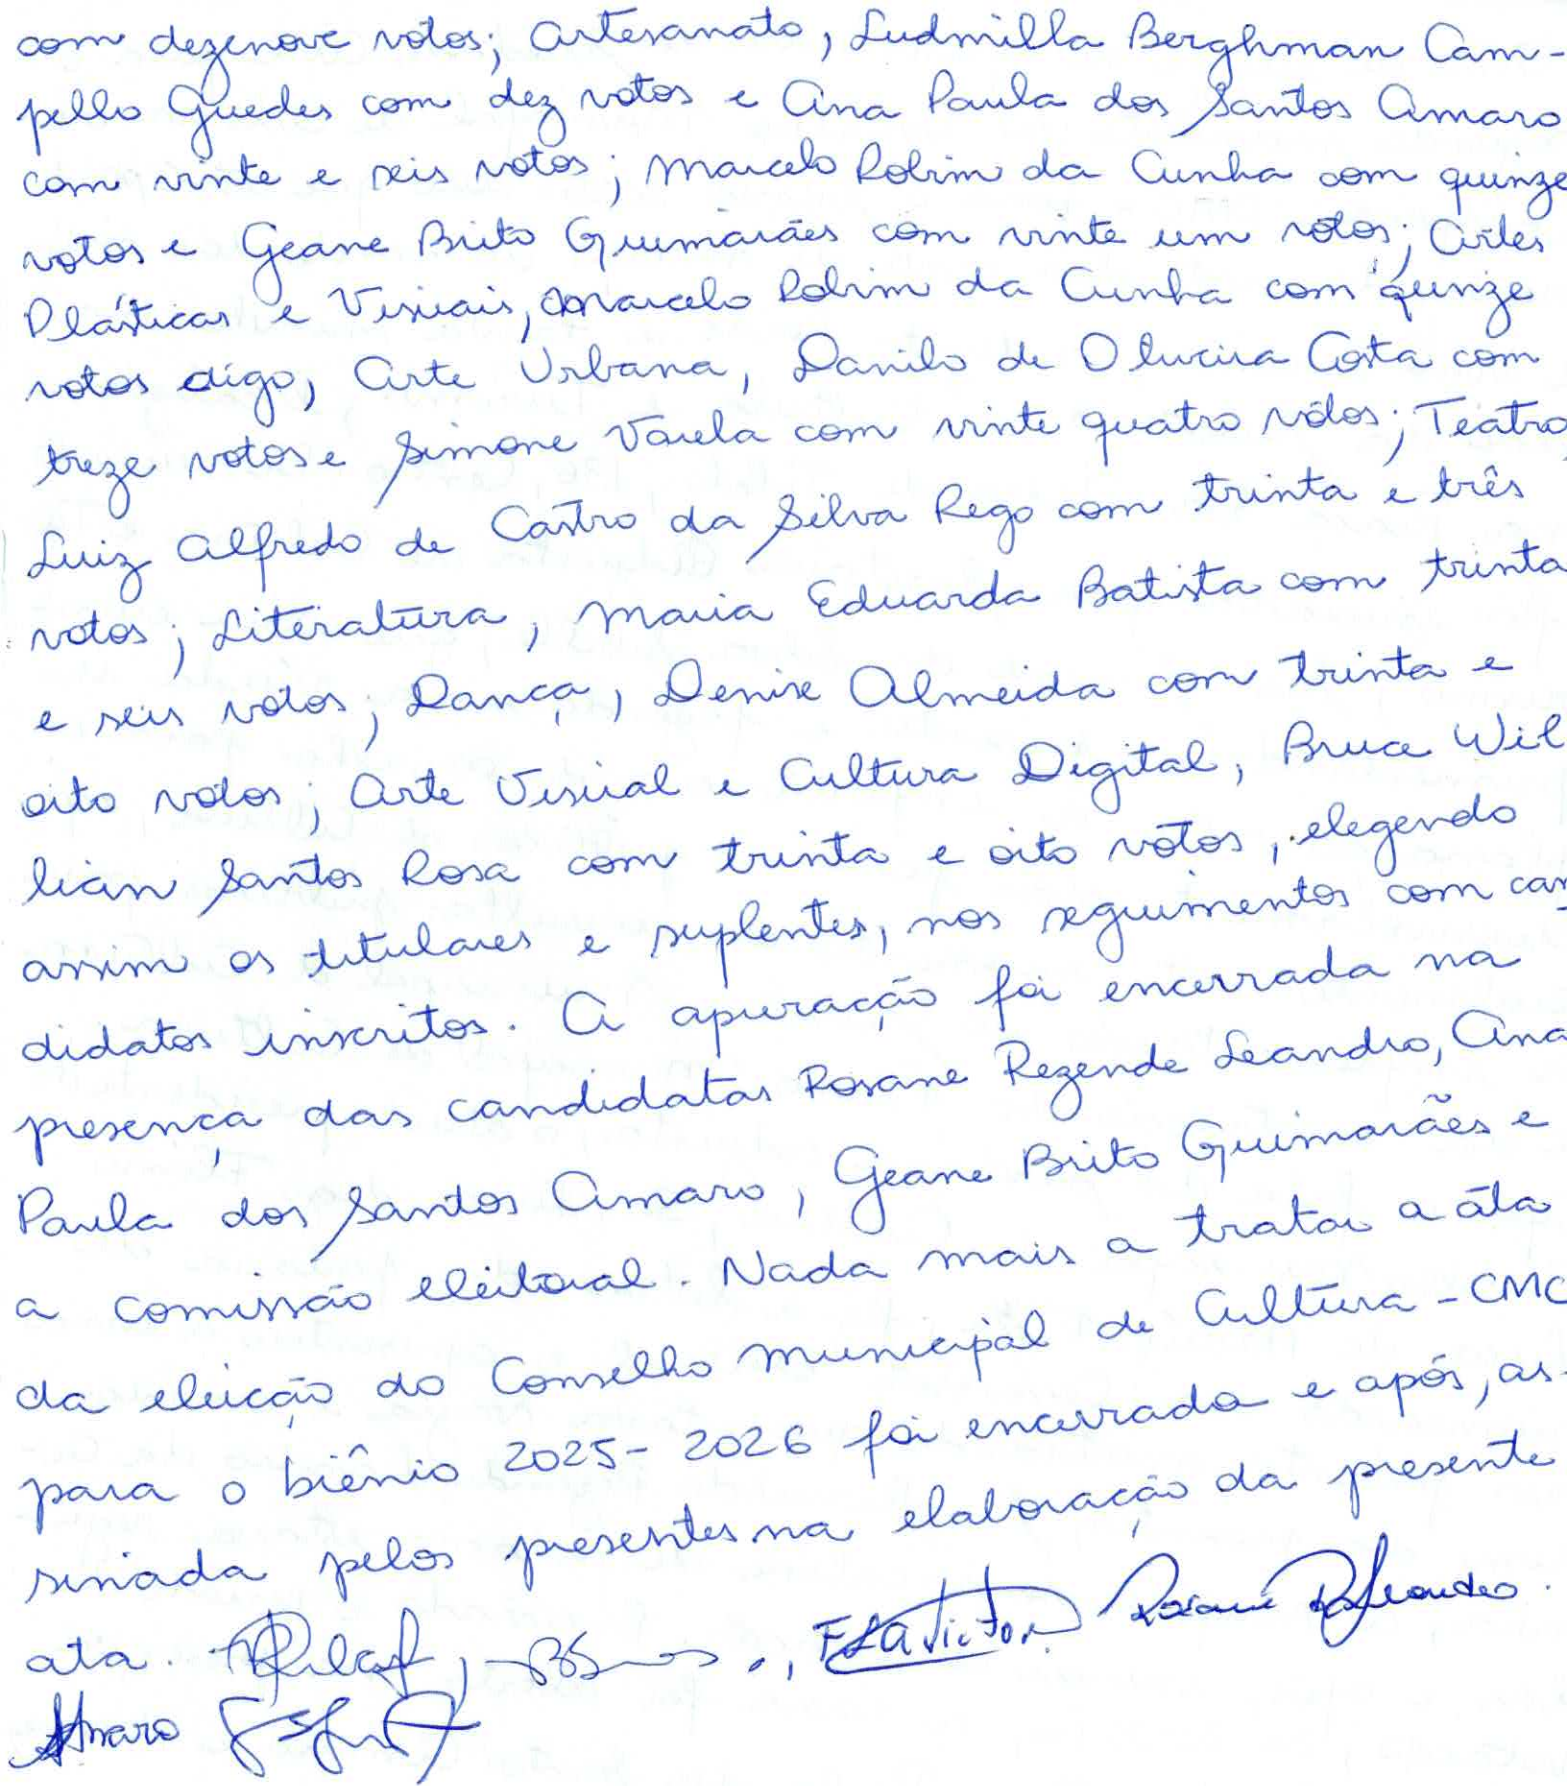 com dezenove votos; Artesanato, Ludmilla Berghman Cam-
pello Guedes com dez votos e Ana Paula dos Santos Amaro
com vinte e seis votos; Marcelo Rolim da Cunha com quinze
votos e Geane Brito Guimarães com vinte um votos; Artes
Plásticas e Visuais, Marcelo Rolim da Cunha com quinze
votos digo, Arte Urbana, Danilo de Oliveira Costa com
treze votos e Simone Varela com vinte quatro votos; Teatro,
Luiz Alfredo de Castro da Silva Rego com trinta e três
votos; Literatura, Maria Eduarda Batista com trinta
e seis votos; Dança, Denise Almeida com trinta e
oito votos; Arte Visual e Cultura Digital, Bruce Wil
lian Santos Rosa com trinta e oito votos, elegendo
assim os titulares e suplentes, nos seguimentos com can
didatos inscritos. A apuração foi encerrada na
presença das candidatas Rosane Rezende Leandro, Ana
Paula dos Santos Amaro, Geane Brito Guimarães e
a comissão eleitoral. Nada mais a tratar a áta
da eleição do Conselho Municipal de Cultura - CMC
para o biênio 2025-2026 foi encerrada e após, as-
sinada pelos presentes na elaboração da presente
ata.
Amaro